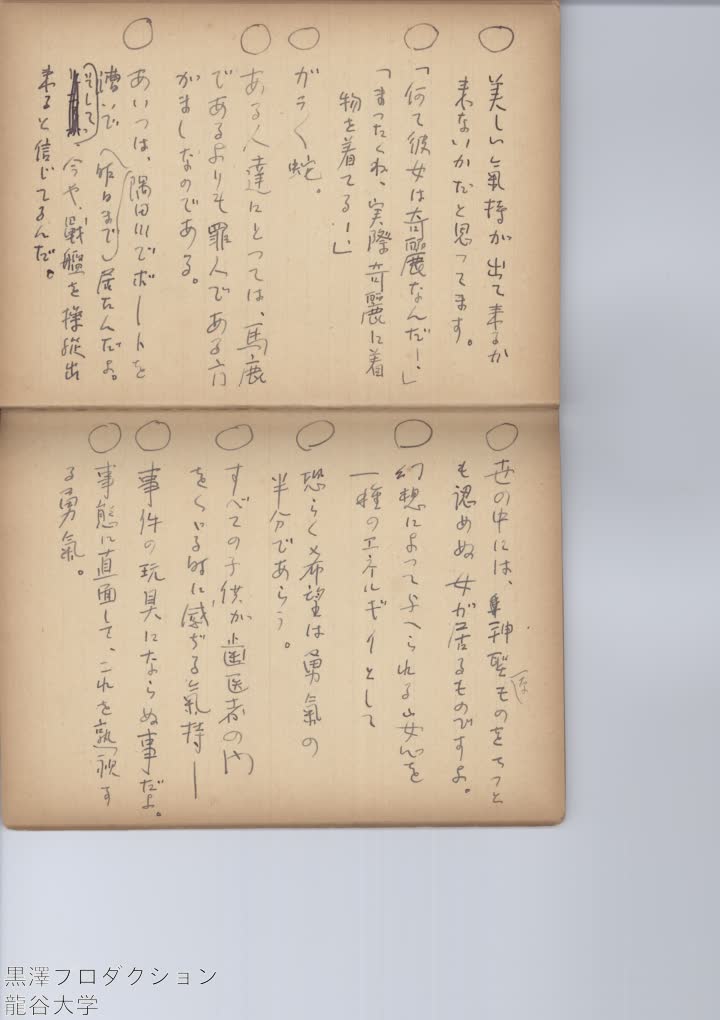 ○ 美しい氣持が出て来るか
来ないかだと思ってます。
○ 「何て彼女は奇麗なんだー、」
「まったくね、実際奇麗に着
物を着てるー、」
○ ガラく蛇。
○ ある人達にとっては、馬鹿
であるよりも罪人である方
がましなのである。
○ あいつは、隅田川でボートを
漕いで(昨日まで)居たんだよ。
そして、今や、戦艦を操縦出
来ると信じてるんだ。
○ 世の中には、神聖なものをちっと
も認めぬ女が居るものですよ。
○ 幻想によって与へられる安心を
一種のエネルギイとして
○ 恐らく希望は勇氣の
半分であらう。
○ すべての子供が歯医者の門
をくゞる時に感ぢる氣持ー
○ 事件の玩具にならぬ事だよ。
○ 事態に直面して、これを熟視す
る勇氣。
黒澤プロダクション
龍谷大学